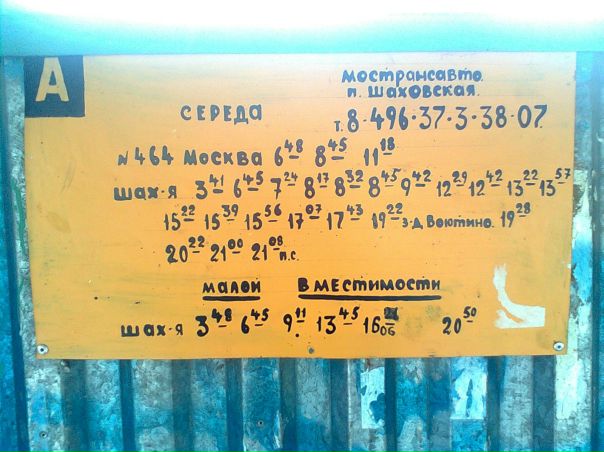 А
Мострансавто.
п. Шаховская.
СЕРЕДА
т. 8-496-37-3-38-07.
№464 Москва 6 48 8 45 11 18
Шах-я 3 41 6 45 7 24 8 17 8 32 8 45 9 42 12 29 12 42 13 22 13 57
15 22 15 39 15 56 17 07 17 43 19 22 з-д Воютино. 19 28
20 22 21 00 21 08 п.с.
малой вместимости
шах-я 3 48 6 45 9 11 13 45 16 06 20 50